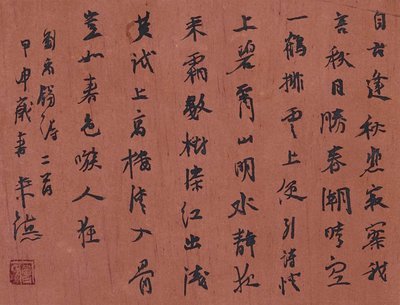 自古逢秋悲寂寥我
言秋日勝春潮晴空
一鶴排雲上便引詩情
上碧霄山明水靜夜
來霜數樹深紅出淺
黃試上高樓清入骨
豈如春色嗾人狂
劉禹錫詩二首
甲申歲書